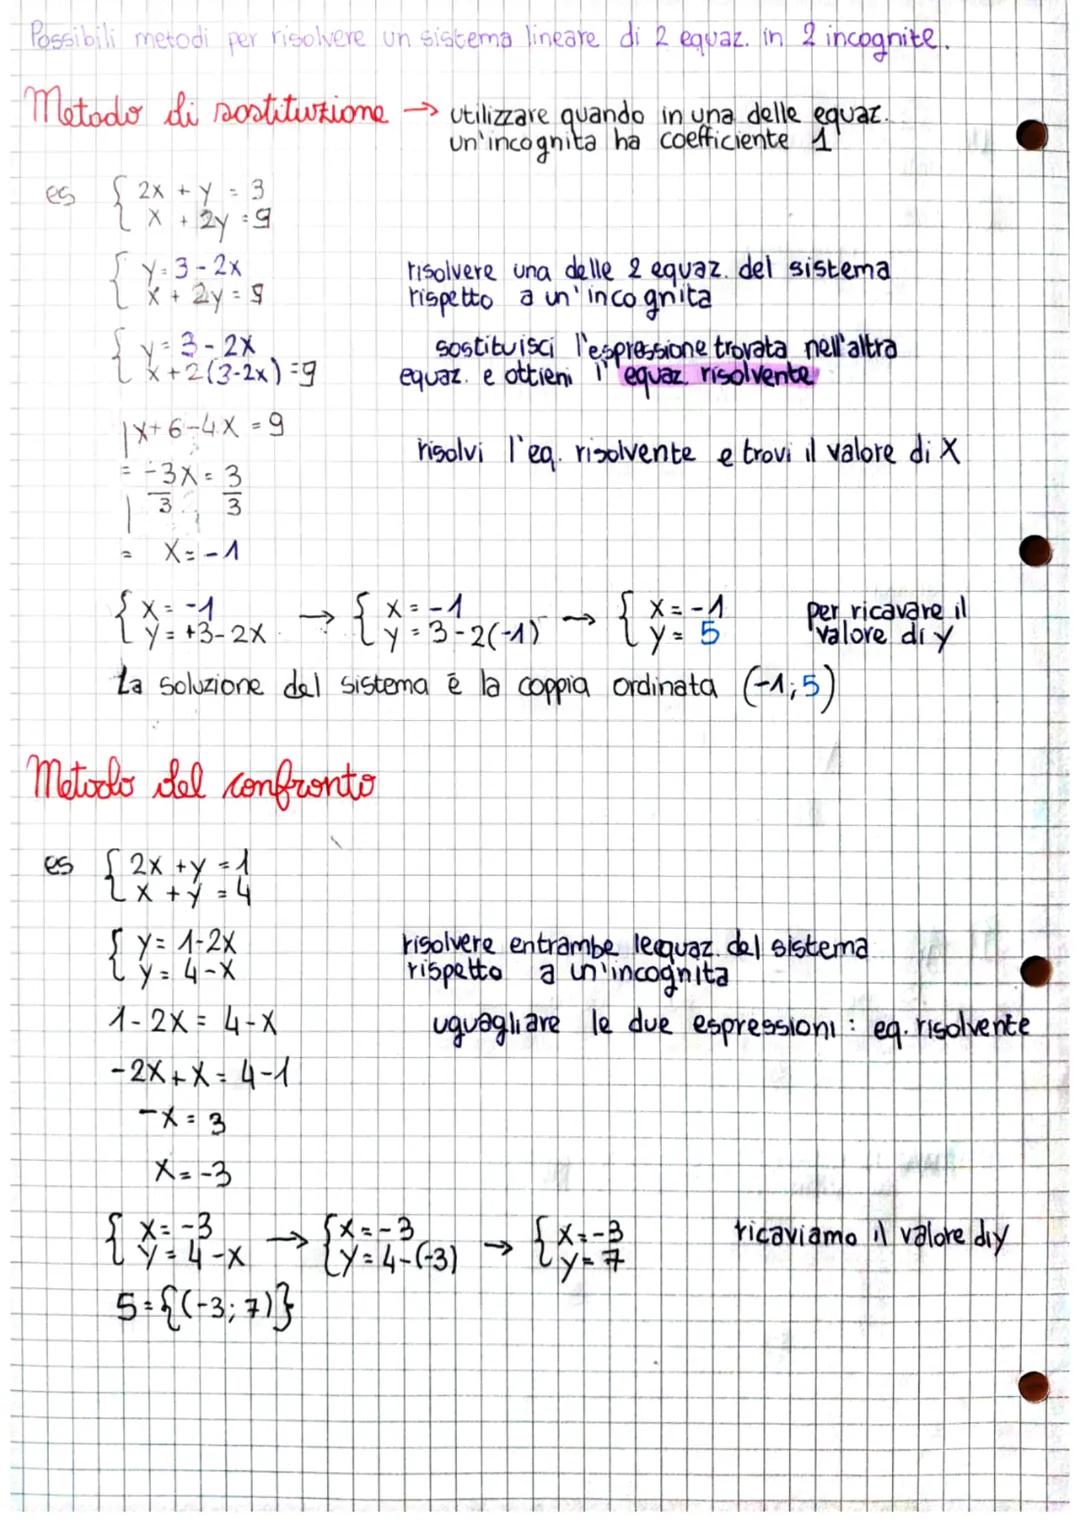 Possibili metodi per risolvere un sistema lineare di 2 equaz. in 2 incognite.
Metodo di sostituzione → utilizzare quando in una delle equaz.
un'incognita ha coefficiente 1
es { 2x + y = 3
{ x + 2y = 9
{ y = 3 - 2x
{ x + 2y = 9
risolvere una delle 2 equaz. del sistema
rispetto a un'incognita
{ y = 3 - 2x
{ x + 2(3-2x) = 9
sostituisci l'espressione trovata nell'altra
equaz. e ottieni l'equaz risolvente
x + 6 - 4x = 9
risolvi l'eq. risolvente e trovi il valore di x
= -3x = 3
3 3
= x = -1
{ x = -1 → { x = -1 → { x = -1
{ y = +3-2x { y = 3-2(-1) { y = 5
per ricavare il
valore di y
La soluzione del sistema è la coppia ordinata (-1;5)
Metodo del confronto
es { 2x + y = 1
{ x + y = 4
{ y = 1-2x
{ y = 4-x
risolvere entrambe le equaz. del sistema
rispetto a un'incognita
1-2x = 4-x
uguagliare le due espressioni: eq. risolvente
-2x+x = 4-1
-x = 3
x = -3
{ x = -3 → { x = -3 → { x = -3
{ y = 4-x { y = 4-(-3) { y = 7
ricaviamo il valore di y
S = {(-3; 7)}